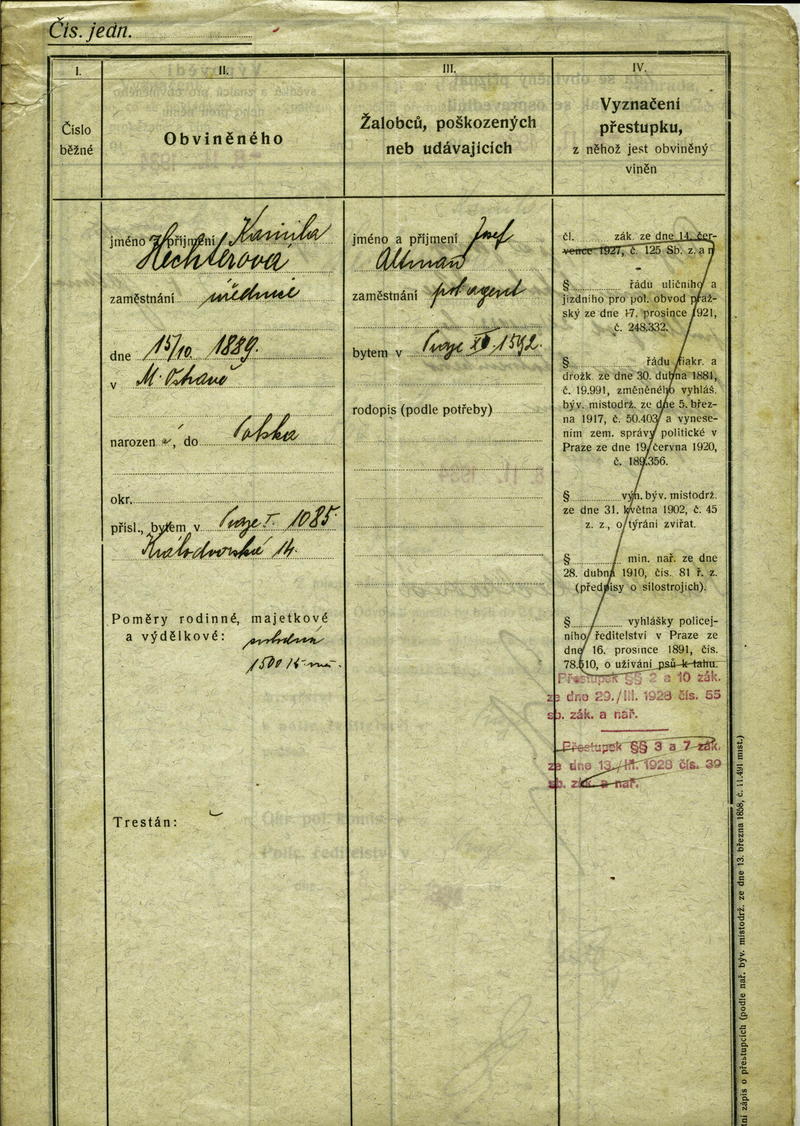 Čís. jedn.
I.
Číslo
běžné
II.
Obviněného
jméno a příjmení Kamila
Hechterová
zaměstnání úřednice
dne 15/10. 1889.
v M. Ostravě
narozen a, do Polska
okr.
přísl., bytem v Praze I. 1085.
Králodvorská 14.
Poměry rodinné, majetkové
a výdělkové: svobodná
1500 Kč
Trestán:
III.
Žalobců, poškozených
neb udávajících
jméno a příjmení Josef
Altman
zaměstnání pol. agent
bytem v Praze XII. 1592.
rodopis (podle potřeby)
IV.
Vyznačení
přestupku,
z něhož jest obviněný
viněn
čl. zák. ze dne 14. čer-
vence 1927, č. 125 Sb. z. a n
§ řádu uličního a
jízdního pro pol. obvod praž-
ský ze dne 17. prosince 1921,
č. 248.332.
§ řádu fiakr. a
drožk. ze dne 30. dubna 1881,
č. 19.991, změněného vyhláš.
býv. místodrž. ze dne 5. břez-
na 1917, č. 50.403 a vynese-
ním zem. správy politické v
Praze ze dne 19. června 1920,
č. 189.356.
§ výn. býv. místodrž.
ze dne 31. května 1902, č. 45
z. z., o týrání zvířat.
§ min. nař. ze dne
28. dubna 1910, čís. 81 ř. z.
(předpisy o silostrojích).
§ vyhlášky policej-
ního ředitelství v Praze ze
dne 16. prosince 1891, čís.
78.510, o užívání psů k tahu.
Přestupek §§ 2 a 10 zák.
ze dne 29./III. 1928 čís. 55
sb. zák. a nař.
Přestupek §§ 3 a 7 zák.
ze dne 13./III. 1928 čís. 39
sb. zák. a nař.
tní zápis o přestupcích (podle nař. býv. místodrž. ze dne 13. března 1858, č. 11.491 míst.)